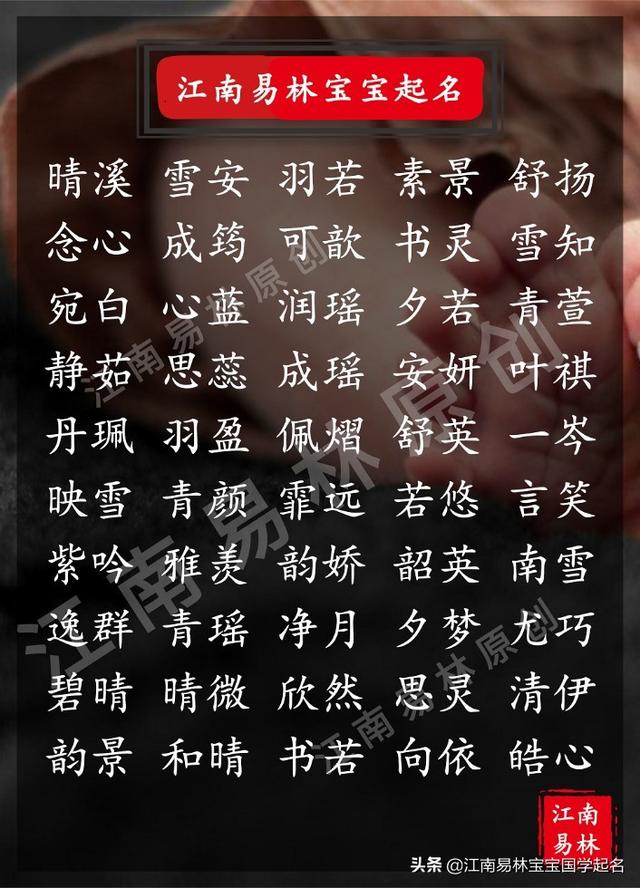 江南易林宝宝起名
晴溪 雪安 羽若 素景 舒扬
念心 成筠 可歆 书灵 雪知
宛白 心蓝 润瑶 夕若 青萱
静茹 思蕊 成瑶 安妍 叶祺
丹珮 羽盈 佩熠 舒英 一岑
映雪 青颜 霏远 若悠 言笑
紫吟 雅羡 韵娇 韶英 南雪
逸群 青瑶 净月 夕梦 尤巧
碧晴 晴微 欣然 思灵 清伊
韵景 和晴 书若 向依 皓心
江南易林原创
江南易林原创
江南易林原创
江南
易林
头条 @江南易林宝宝国学起名